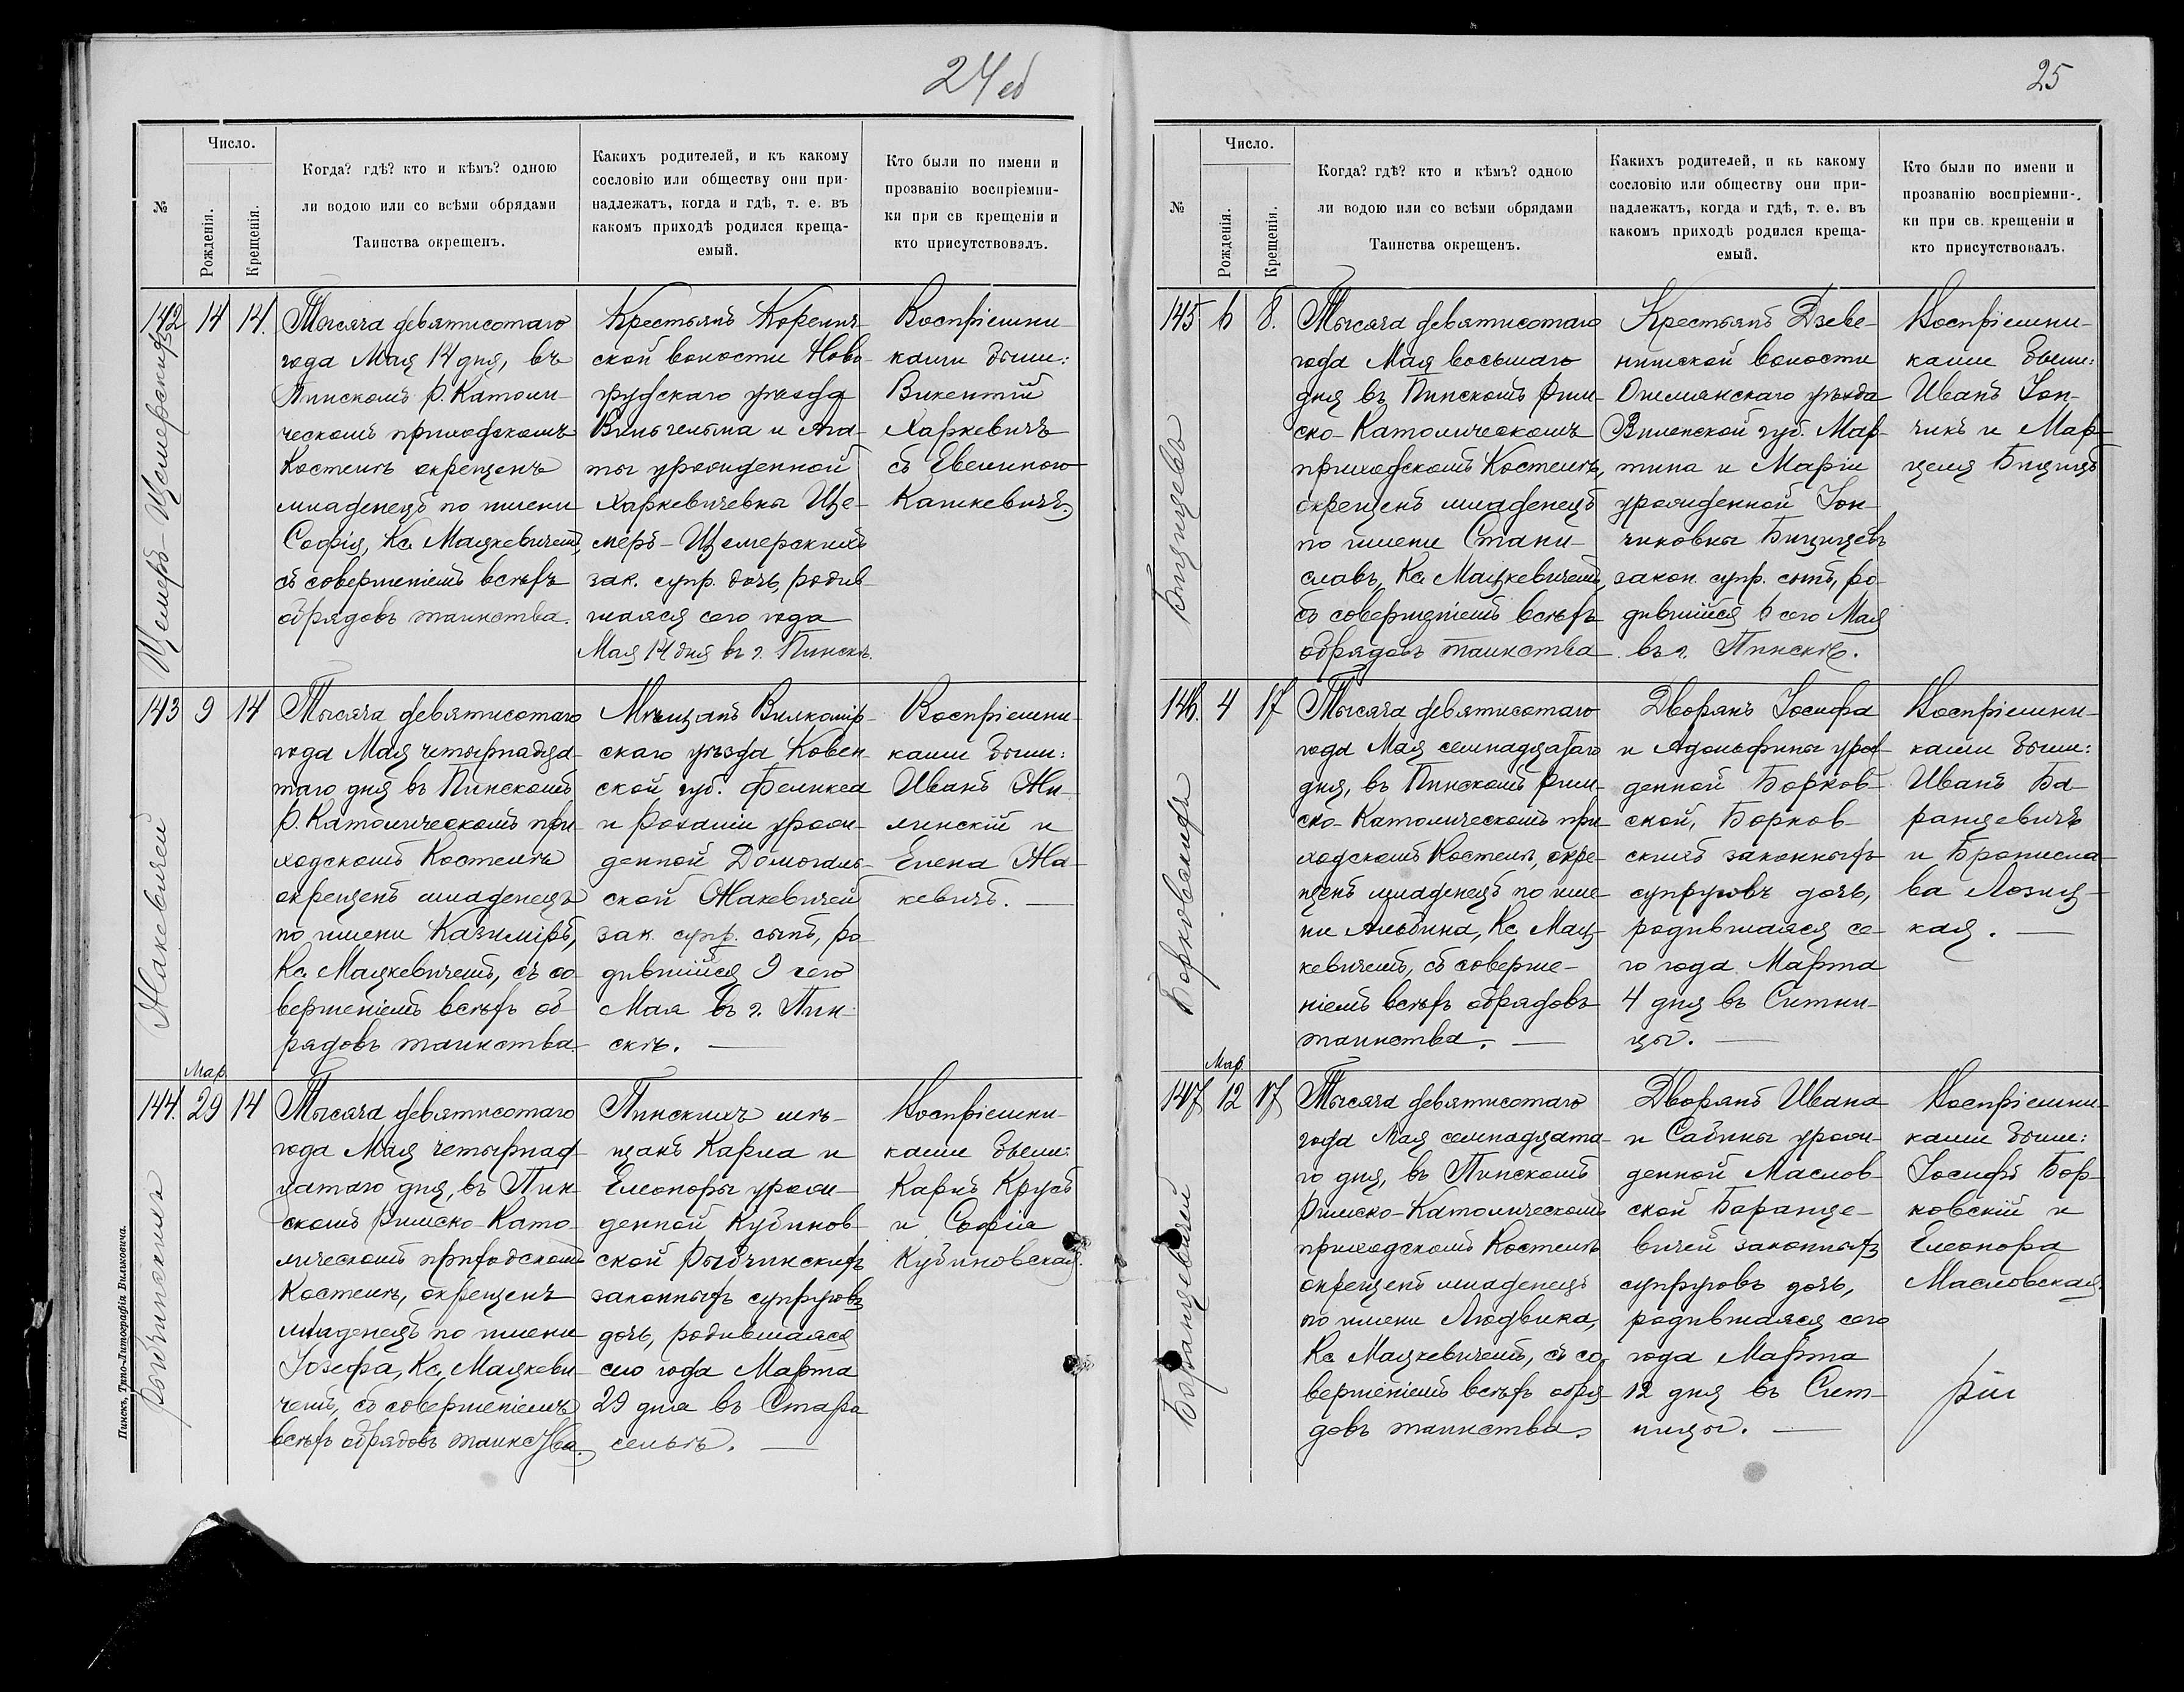 24 об
№
Число.
Рожденія.
Крещенія.
Когда? гдѣ? кто и кѣмъ? одною
ли водою или со всѣми обрядами
Таинства окрещенъ.
Какихъ родителей, и къ какому
сословію или обществу они при-
надлежатъ, когда и гдѣ, т. е. въ
какомъ приходѣ родился креща-
емый.
Кто были по имени и
прозванію воспріемни-
ки при св крещеніи и
кто присутствовалъ.
142
14
14.
Щемеръ-Щемерскихъ
Тысяча девятисотаго
года Мая 14 дня, въ
Пинскомъ Р. Католи-
ческомъ приходскомъ
Костелѣ окрещенъ
младенецъ по имени
Софія, Кс. Мацкевичемъ,
съ совершеніемъ всѣхъ
обрядовъ таинства.
Крестьянъ Корелич-
ской волости Ново-
грудскаго уѣзда
Вильгельма и Ага-
ты урожденной
Харкевичевна Ще-
меръ-Щемерскихъ
зак. супр. дочь, родив-
шаяся сего года
Мая 14 дня въ г. Пинскѣ.
Воспріемни-
ками были:
Викентій
Харкевичъ
съ Евелиною
Кашкевичъ
143
9
14
Жакевичей
Тысяча девятисотаго
года Мая четырнадца-
таго дня въ Пинскомъ
Р. Католическомъ при-
ходскомъ Костелѣ
окрещенъ младенецъ
по имени Казиміръ,
Кс. Мацкевичемъ, съ со-
вершеніемъ всѣхъ об-
рядовъ таинства.
Мѣщанъ Вилкомір-
скаго уѣзда Ковен-
ской губ. Феликса
и Розаліи урож-
денной Домогаль-
ской Жакевичей
зак. супр. сынъ, ро-
дившійся 9 сего
Мая въ г. Пин-
скѣ. —
Воспріемни-
ками были:
Иванъ Жи-
линскій и
Елена Жа-
кевичъ. —
144.
Мар.
29
14
Рыбчинскихъ
Тысяча девятисотаго
года Мая четырнад-
цатаго дня, въ Пин-
скомъ Римско-Като-
лическомъ приходскомъ
Костелѣ, окрещенъ
младенецъ по имени
Іозефа, Кс. Мацкеви-
чемъ, съ совершеніемъ
всѣхъ обрядовъ таинства.
Пинскихъ мѣ-
щанъ Карла и
Елеоноры урож-
денной Кубинов-
ской Рыбчинскихъ
законныхъ супруговъ
дочь, родившаяся
сего года Марта
29 дня въ Старо
сельѣ. —
Воспріемни-
ками были:
Карлъ Крусъ
и Софія
Кубиновская.
Пинскъ, Типо-Литографія Вильковича.
25
№
Число.
Рожденія.
Крещенія.
Когда? гдѣ? кто и кѣмъ? одною
ли водою или со всѣми обрядами
Таинства окрещенъ.
Какихъ родителей, и къ какому
сословію или обществу они при-
надлежатъ, когда и гдѣ, т. е. въ
какомъ приходѣ родился креща-
емый.
Кто были по имени и
прозванію воспріемни-
ки при св. крещеніи и
кто присутствовалъ.
145
6
8.
Бицицевъ
Тысяча девятисотаго
года Мая восьмаго
дня въ Пинскомъ Рим-
ско-Католическомъ
приходскомъ Костелѣ,
окрещенъ младенецъ
по имени Стани-
славъ, Кс. Мацкевичемъ,
съ совершеніемъ всѣхъ
обрядовъ таинства.
Крестьянъ Дзеве-
нишской волости
Ошмянскаго уѣзда
Виленской губ. Мар-
тина и Маріи
урожденной Іон-
чиковны Бицицевъ
закон. супр. сынъ, ро-
дившійся 6 сего Мая
въ г. Пинскѣ.
Воспріемни-
ками были:
Иванъ Іон-
чикъ и Мар-
целя Бицицъ
146.
4
17
Борковскихъ
Тысяча девятисотаго
года Мая семнадцатаго
дня, въ Пинскомъ Рим-
ско-Католическомъ при-
ходскомъ Костелѣ, окре-
щенъ младенецъ по име-
ни Альбина, Кс. Мац-
кевичемъ, съ соверше-
ніемъ всѣхъ обрядовъ
таинства. —
Дворянъ Іосифа
и Адольфины урож-
денной Борков-
ской, Борков-
скихъ законныхъ
супруговъ дочь,
родившаяся се-
го года Марта
4 дня въ Ситни-
цы. —
Воспріемни-
ками были:
Иванъ Ба-
ранцевичъ
и Бронисла-
ва Лозиц-
кая. —
147
Мар.
12
17
Баранцевичей
Тысяча девятисотаго
года Мая семнадцата-
го дня, въ Пинскомъ
Римско-Католическомъ
приходскомъ Костелѣ
окрещенъ младенецъ
по имени Людвика,
Кс. Мацкевичемъ, съ со-
вершеніемъ всѣхъ обря-
довъ таинства.
Дворянъ Ивана
и Сабины урож-
денной Маслов-
ской Баранце-
вичей законныхъ
супруговъ дочь,
родившаяся сего
года Марта
12 дня въ Сит-
ницы. —
Воспріемни-
ками были:
Іосифъ Бор-
ковскій и
Елеонора
Масловская.